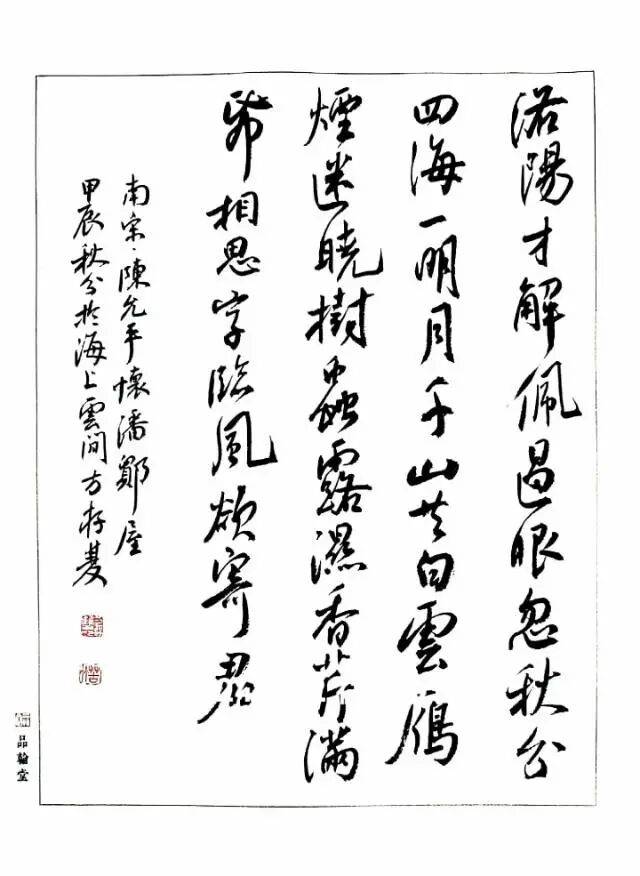 洛陽才解佩過眼忽秋分
四海一明月千山共白雲雁
煙迷曉樹蟲露濕香芹滿
帋相思字臨風欲寄君
南宋·陳允平懷潘鄭屋
甲辰秋分於海上雲間方存
品翰堂